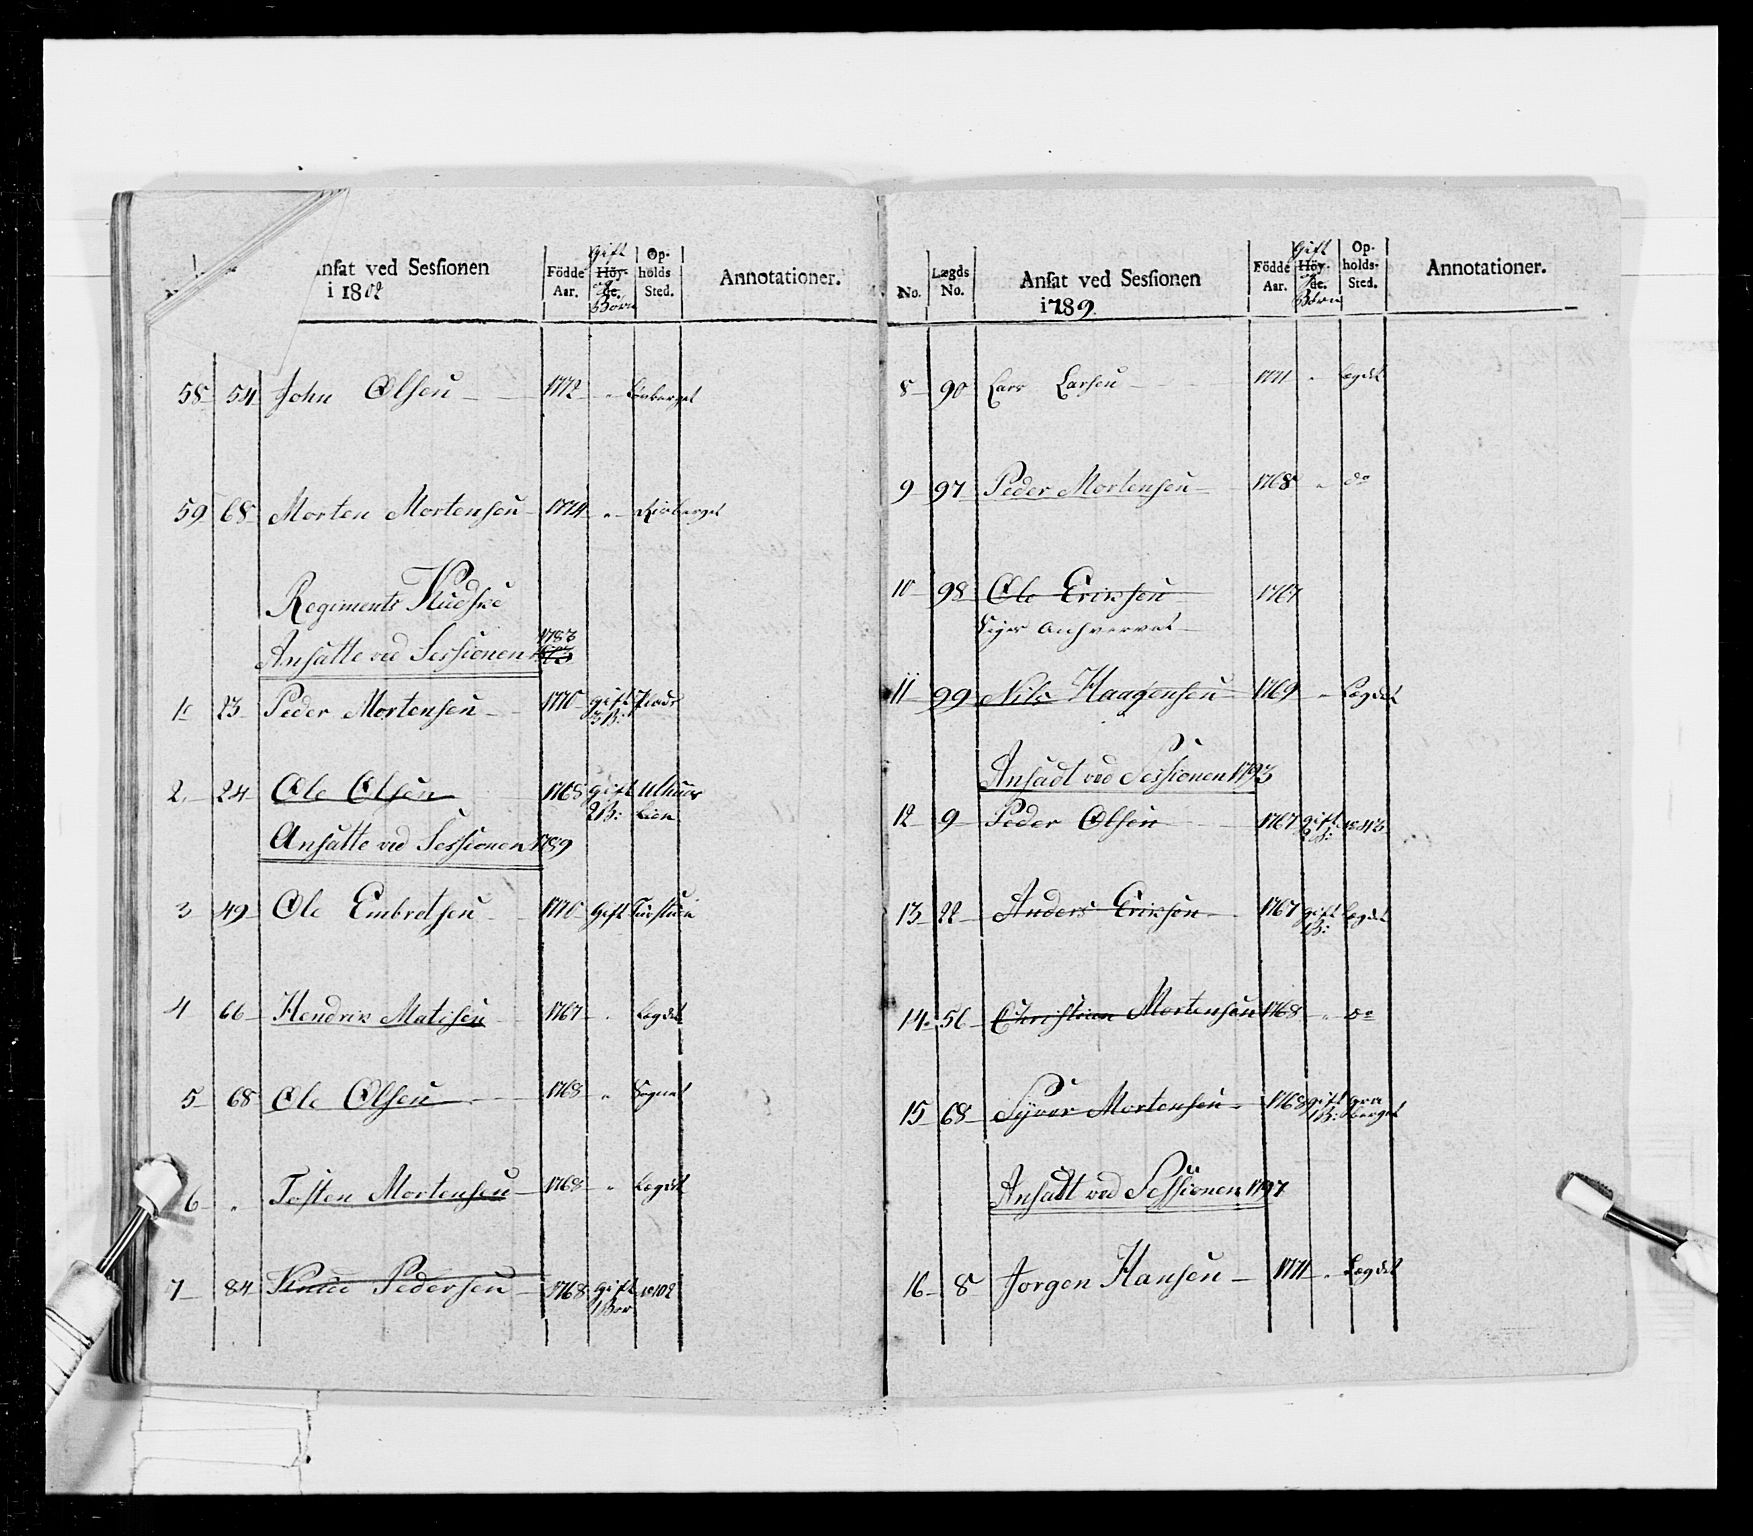 Ansat ved Sessionen
i 1802
Födde
Aar.
Gift
Höy-
og
de.
Börn
Op-
holds
Sted.
Annotationer.
58 54 John Olsen 1772 "
59 68 Morten Mortensen 1774 "
Regiments
Ansatte ved Sessionen 1783
1 23 Peder Mortensen 1770 gift
3 B:
2. 24 Ole Olsen 1768 gift
2 B:
Ansatte ved Sessionen 1789
3 49 Ole Embretsen 1770 Gift
4 66 Hendrik Matisen 1767 " Lægdet
5 68 Ole Olsen 1768 " Sognet
6 " Tosten Mortensen 1768 " Lægdet
7 84 Knud Pedersen 1768 Gift
1 Bar
No.
Lægds
No.
Ansat ved Sessionen
i 1789.
Födde
Aar.
Gift
Höy-
og
de.
Börn
Op-
holds-
Sted.
Annotationer.
8 90 Lars Larsen 1771 " Lægdet
9 97 Peder Mortensen 1768 " do
10 98 Ole Eriksen 1767
11 99 Nils Haagensen 1769 " Lægdet
Ansadt ved Sessionen 1793
12 9 Peder Olsen 1767 gift
2 B:
13 22 Anders Eriksen 1767 gift Lægdet
1 B:
14. 56 Christian Mortensen 1768 " do
15 68 Syver Mortensen 1768 gift
1 B: berget
Ansadt ved Sessionen 1797
16 8 Jorgen Hansen 1771 " Lægdet